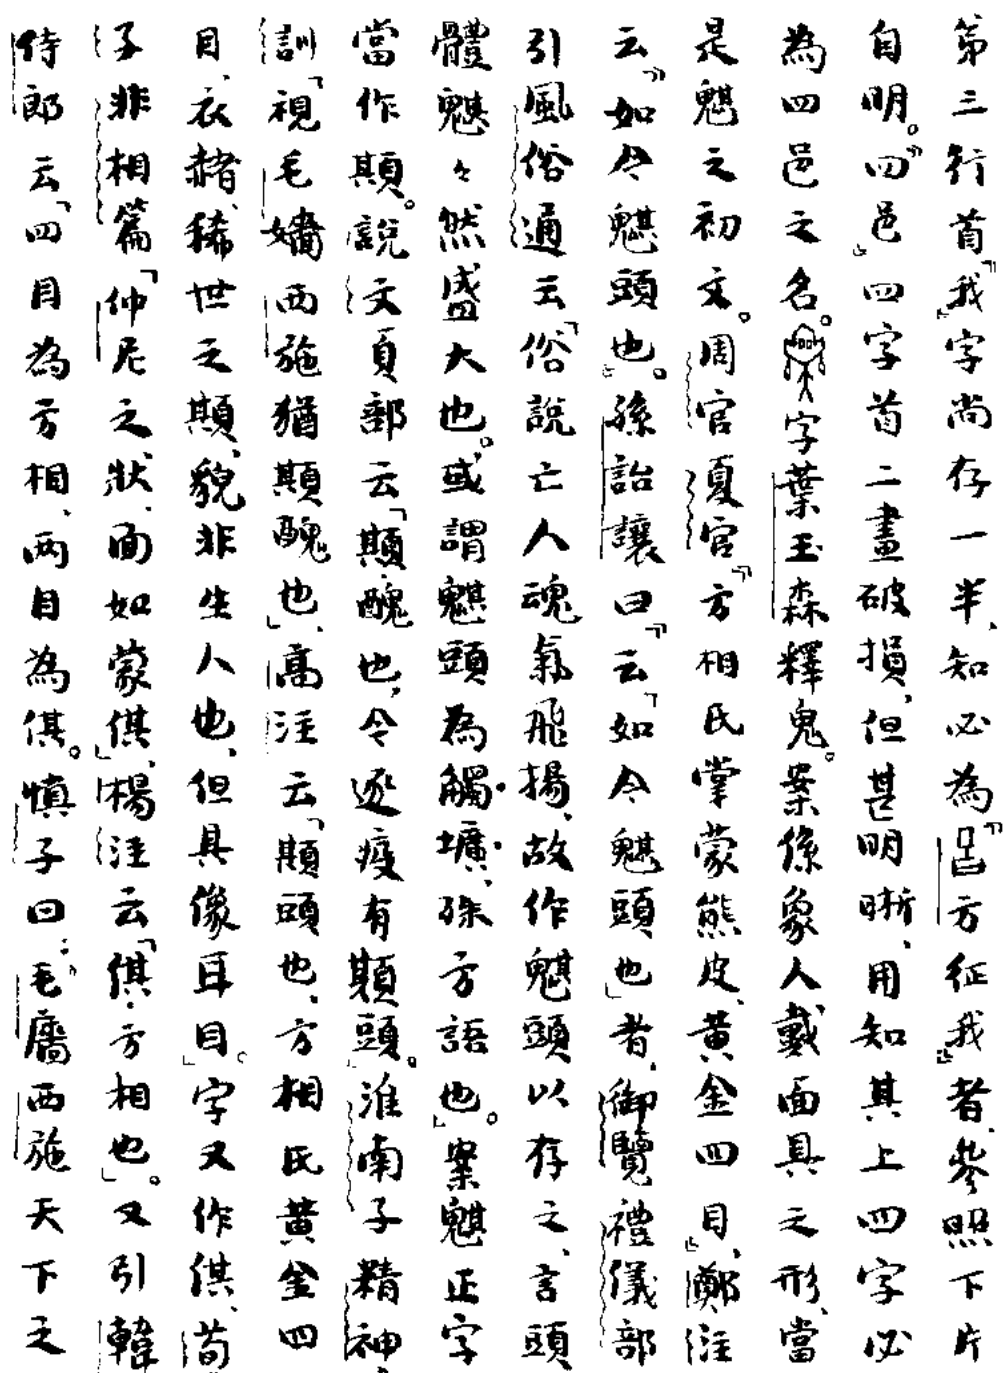 第三行首「我」字尚存一半、知必為「𠱠方征我」者、參照下片
自明。「四邑」四字首二畫破損、但甚明晰、用知其上四字必
為四邑之名。字葉玉森釋鬼。案係象人戴面具之形、當
是魌之初文。周官夏官「方相氏掌蒙熊皮、黃金四目」、鄭注
云「如今魌頭也」。孫詒讓曰「云「如今魌頭也」者、御覽禮儀部
引風俗通云「俗說亡人魂氣飛揚、故作魌頭以存之、言頭
體魌々然盛大也。或謂魌頭為觸壙、殊方語也」。案魌正字
當作䫏。說文頁部云「䫏、醜也、今逐疫有䫏頭。」淮南子精神
訓「視毛嬙西施猶䫏醜也」、高注云「䫏頭也、方相氏黃金四
目、衣赭、稀世之䫏、貌非生人也、但具像耳目」。字又作倛、荀
子非相篇「仲尼之狀、面如蒙倛」、楊注云「倛、方相也」。又引韓
侍郎云「四目為方相、兩目為倛。慎子曰：毛廧西施天下之